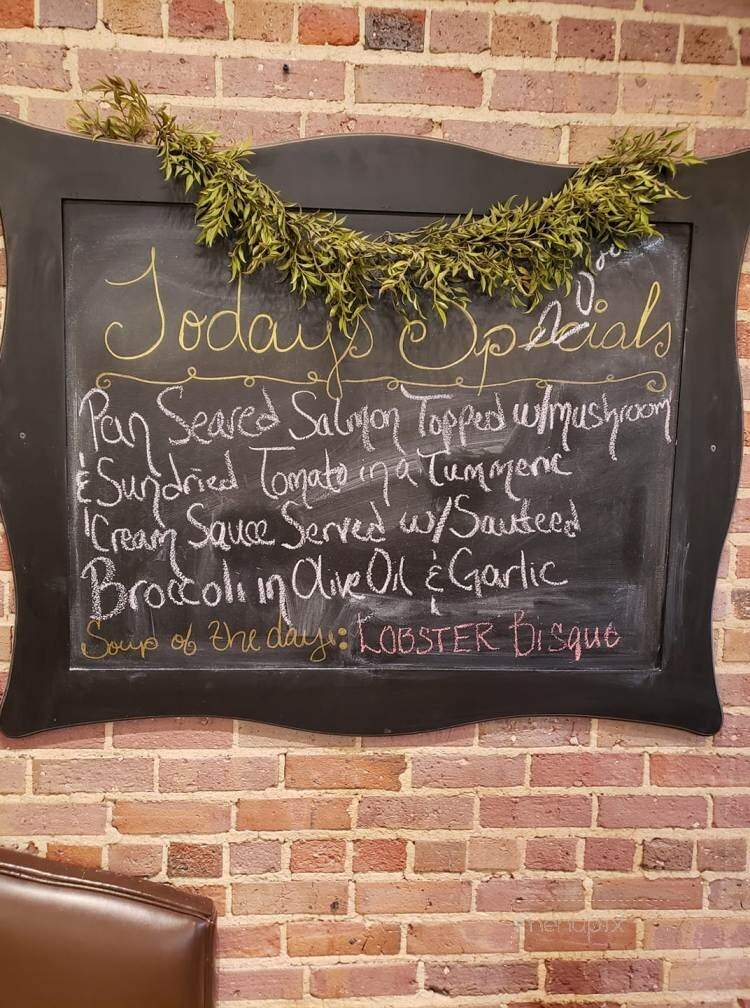 Todays Specials
Pan Seared Salmon Topped w/mushroom
& Sundried Tomato in a Tummeric
Cream Sauce Served w/Sauteed
Broccoli in Olive Oil & Garlic
Soup of the day: LOBSTER Bisque
menupix